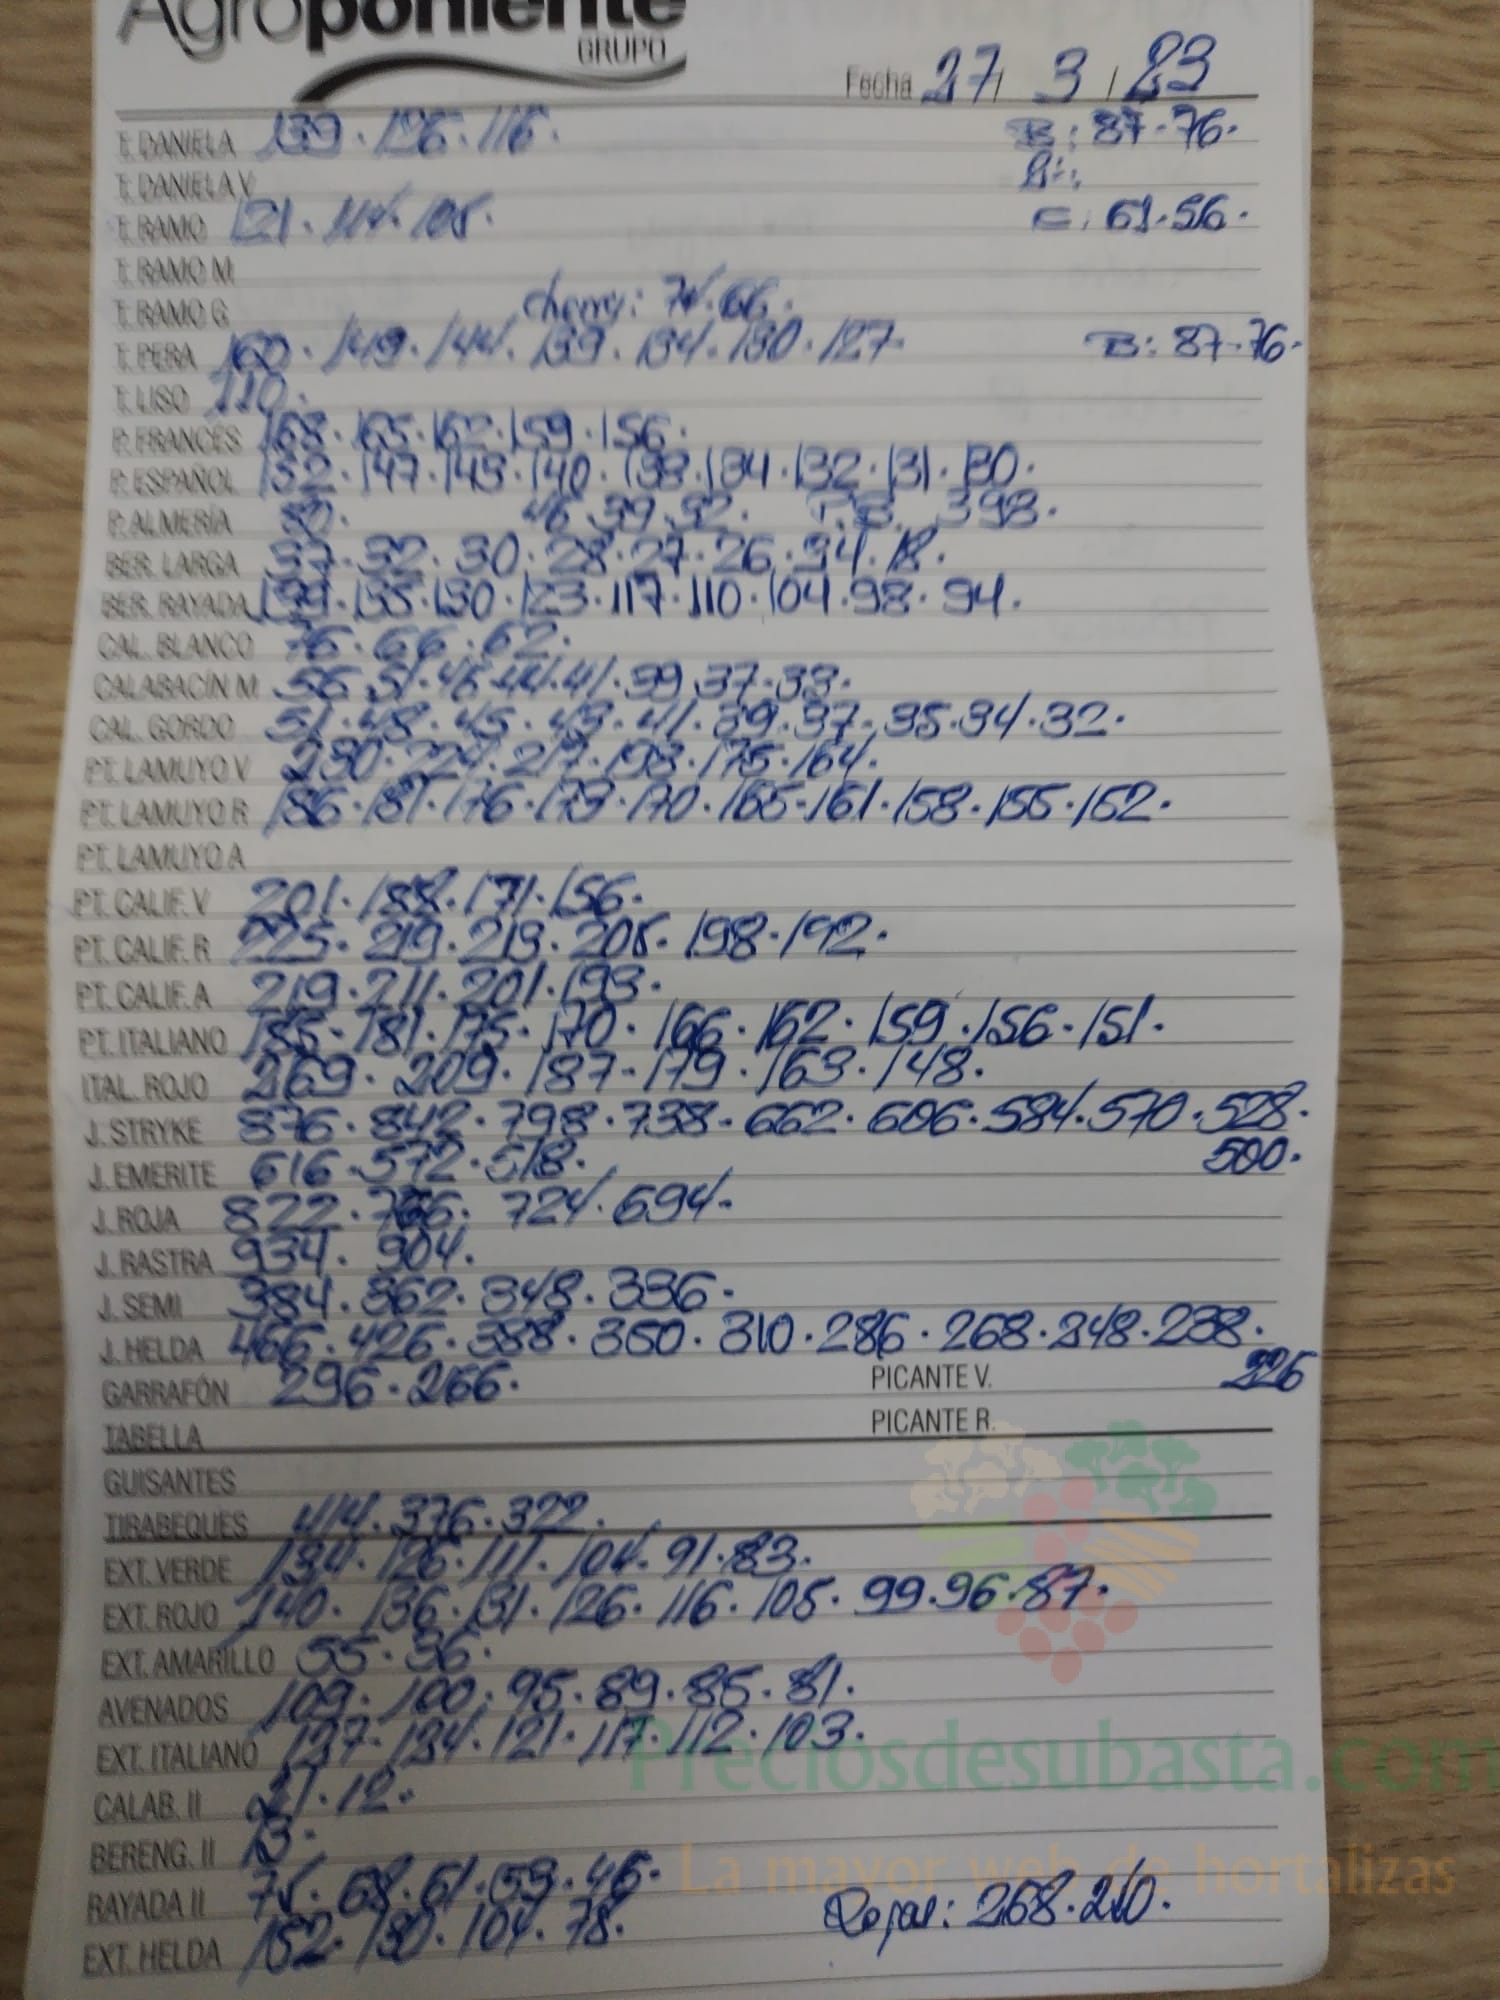 Agroponiente
GRUPO
Fecha 27/ 3 / 23
T. DANIELA 139 · 126 · 116 · B: 87 · 76 ·
T. DANIELA V
T. RAMO 121 · 114 · 105 · C: 61 · 56 ·
T. RAMO M
T. RAMO G Cherry: 74 · 66 ·
T. PERA 160 · 149 · 144 · 139 · 134 · 130 · 127 B: 87 - 76 ·
T. LISO 110 ·
P. FRANCÉS 168 · 165 · 162 · 159 · 156 ·
P. ESPAÑOL 152 · 147 · 143 · 140 · 138 · 134 · 132 · 131 · 130 ·
P. ALMERÍA 80 · 46 · 39 · 32 · 398 ·
BER. LARGA 37 · 32 · 30 · 28 · 27 · 26 · 24 · 18 ·
BER. RAYADA 139 · 135 · 130 · 123 · 117 · 110 · 104 · 98 · 94 ·
CAL. BLANCO 76 · 66 · 62 ·
CALABACÍN M 56 · 51 · 46 · 44 · 41 · 39 · 37 · 33 ·
CAL. GORDO 51 · 48 · 45 · 43 · 41 · 39 · 37 · 35 · 34 · 32 ·
PT. LAMUYO V 230 · 224 · 217 · 193 · 175 · 164 ·
PT. LAMUYO R 186 · 181 · 176 · 173 · 170 · 165 · 161 · 158 · 155 · 152 ·
PT. LAMUYO A
PT. CALIF. V 201 · 188 · 171 · 156 ·
PT. CALIF. R 225 · 219 · 213 · 205 · 198 · 192 ·
PT. CALIF. A 219 · 211 · 201 · 193 ·
PT. ITALIANO 185 · 181 · 175 · 170 · 166 · 162 · 159 · 156 · 151 ·
ITAL. ROJO 269 · 209 · 187 - 179 · 163 · 148 ·
J. STRYKE 876 · 842 · 798 · 738 - 662 · 606 · 584 · 570 · 528 ·
J. EMERITE 616 · 572 · 518 · 500 ·
J. ROJA 822 · 766 · 724 · 694 ·
J. RASTRA 934 · 904 ·
J. SEMI 384 · 362 · 348 · 336 ·
J. HELDA 466 · 426 · 388 · 350 · 310 · 286 · 268 · 248 · 238 ·
GARRAFÓN 296 · 266 · PICANTE V. 226
TABELLA PICANTE R.
GUISANTES
TIRABEQUES 414 · 376 · 322 ·
EXT. VERDE 134 · 126 · 111 · 104 · 91 · 83 ·
EXT. ROJO 140 · 136 · 131 · 126 · 116 · 105 · 99 · 96 · 87 ·
EXT. AMARILLO 55 · 36 ·
AVENADOS 109 · 100 · 95 · 89 · 85 · 81 ·
EXT. ITALIANO 137 · 134 · 121 · 117 · 112 · 103 ·
Preciosdesubasta.com
CALAB. II 21 · 12 ·
BERENG. II 13 ·
La mayor web de hortalizas
RAYADA II 75 · 68 · 61 · 53 · 46 ·
EXT. HELDA 152 · 130 · 104 · 78 · 268 · 210 ·